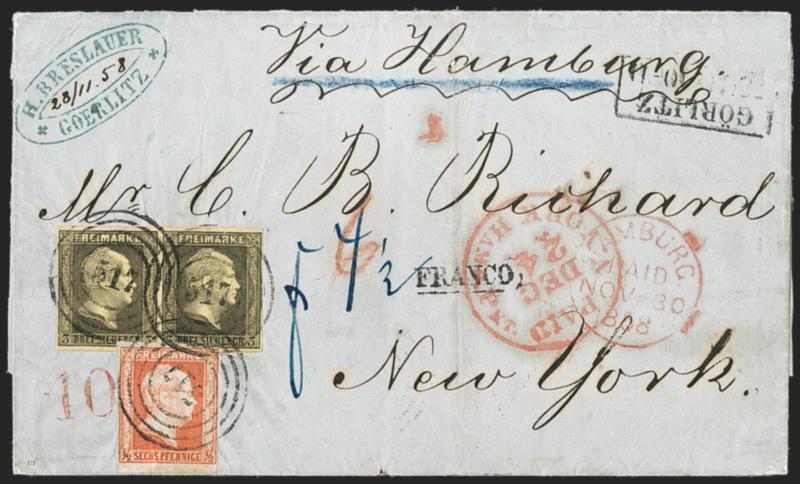 H. BRESLAUER
28/11.58
GOERLITZ
Via Hamburg.
GÖRLITZ
Mr C. B. Richard
FREIMARKE
FREIMARKE
317
3 DREI SILBERGR. 3
3 DREI SILBERGR. 3
4½
FRANCO,
HAMBURG
PAID
NOV 30
N. YORK HAM. PKT.
DEC
24
PAID
10
New York.
FREIMARKE
½ SECHS PFENNIGE ½